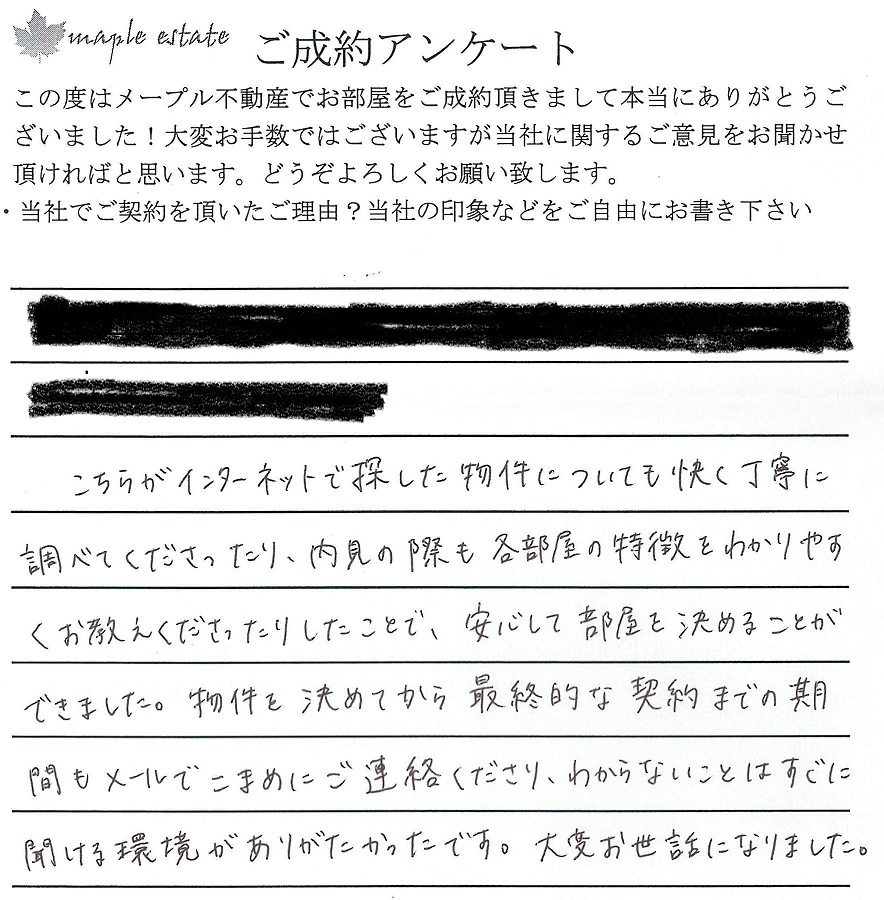 maple estate ご成約アンケート
この度はメープル不動産でお部屋をご成約頂きまして本当にありがとうご
ざいました！大変お手数ではございますが当社に関するご意見をお聞かせ
頂ければと思います。どうぞよろしくお願い致します。
・当社でご契約を頂いたご理由？当社の印象などをご自由にお書き下さい
こちらがインターネットで探した物件についても快く丁寧に
調べてくださったり、内見の際も各部屋の特徴をわかりやす
くお教えくださったりしたことで、安心して部屋を決めることが
できました。物件を決めてから最終的な契約までの期
間もメールでこまめにご連絡くださり、わからないことはすぐに
聞ける環境がありがたかったです。大変お世話になりました。